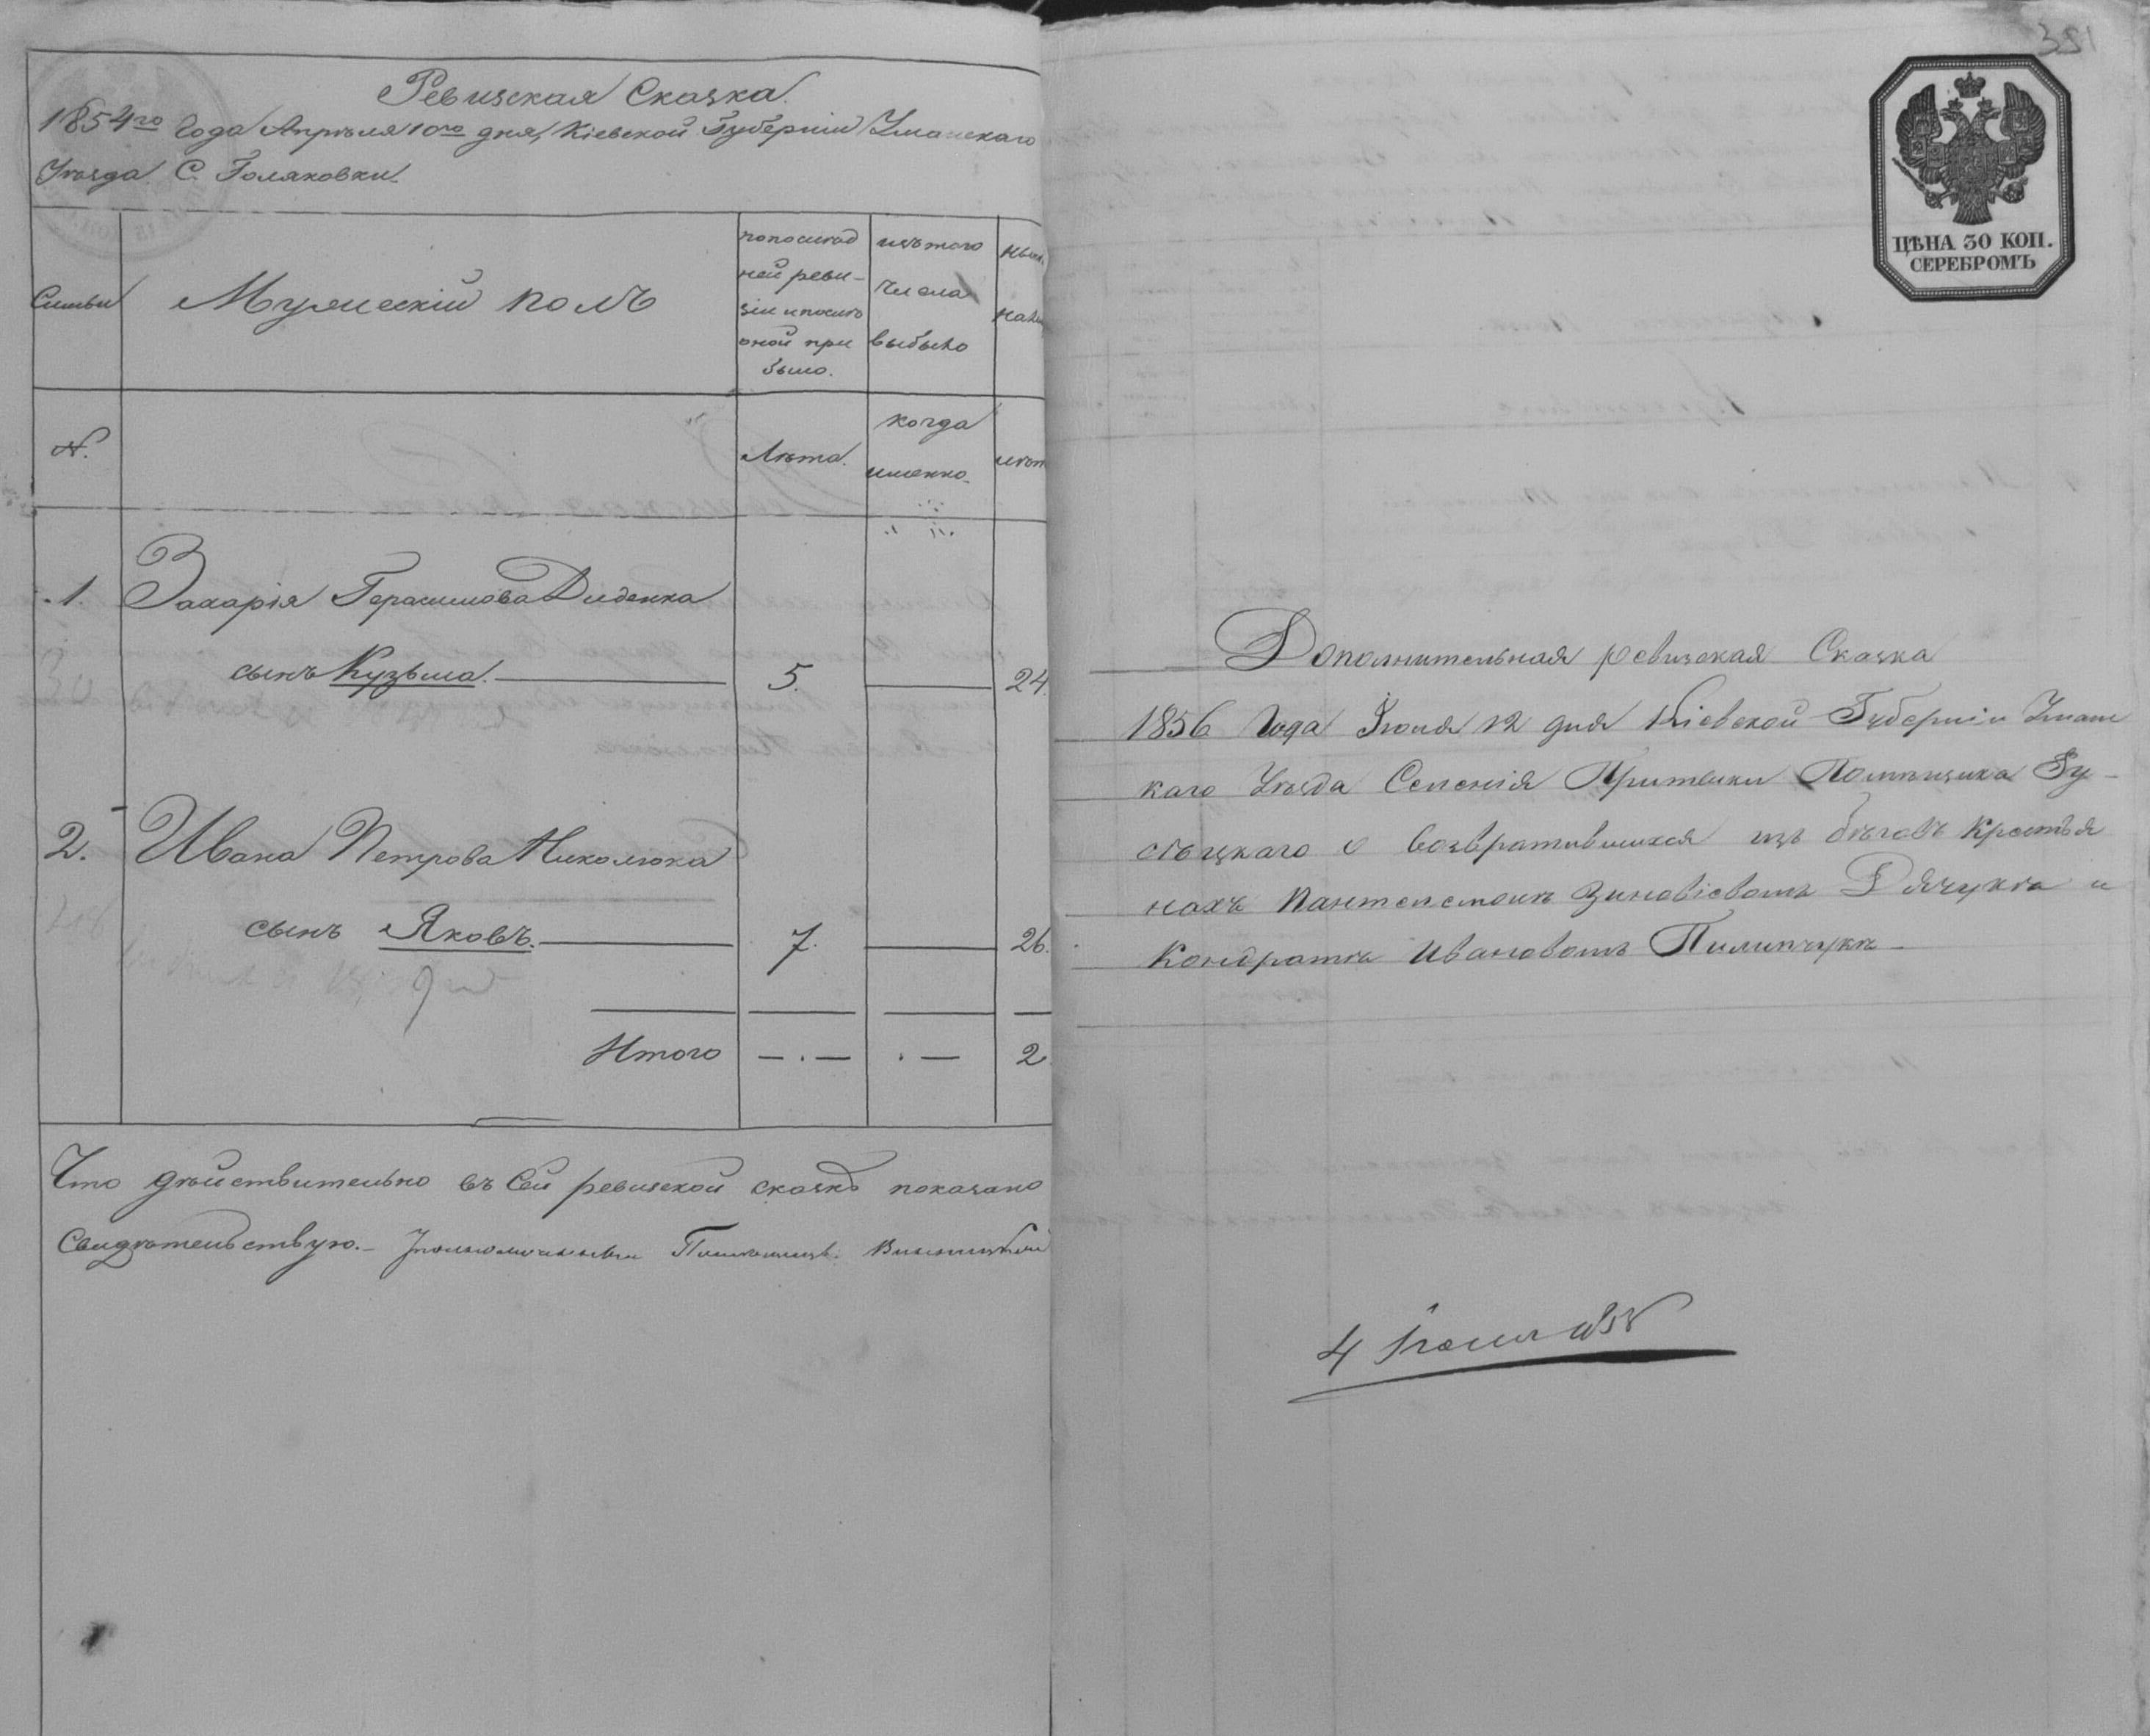 Ревизская Сказка.
1854го Года Апрѣля 10го дня, Кіевской Губерніи Уманскаго
Уѣзда С. Голяковки.
Семьи
Мужескій полъ
по послѣд
ней реви-
зіи и послѣ
оной при
было.
изъ того
числа
выбыло
нын
нали
№.
Лѣта.
когда
именно.
лѣт
1.
Захарія Герасимова Диденка
сынъ Кузьма.
5.
24
2.
Ивана Петрова Николюка
сынъ Яковъ.
7.
26.
Итого
2
Что дѣйствительно въ сей ревизской сказкѣ показано
Свидѣтельствую.-
351
ЦѢНА 30 КОП.
СЕРЕБРОМЪ
Дополнительная ревизская Сказка
1856 Года Іюня 12 дня Кіевской Губерніи Уманс
каго Уѣзда Селенія Притыки Помѣщика
о возвратившихся изъ бѣговъ Крестья
нахъ Пантелемонѣ Зиновіевомъ Дячукѣ и
Кондратѣ Ивановомъ Пилипчукѣ